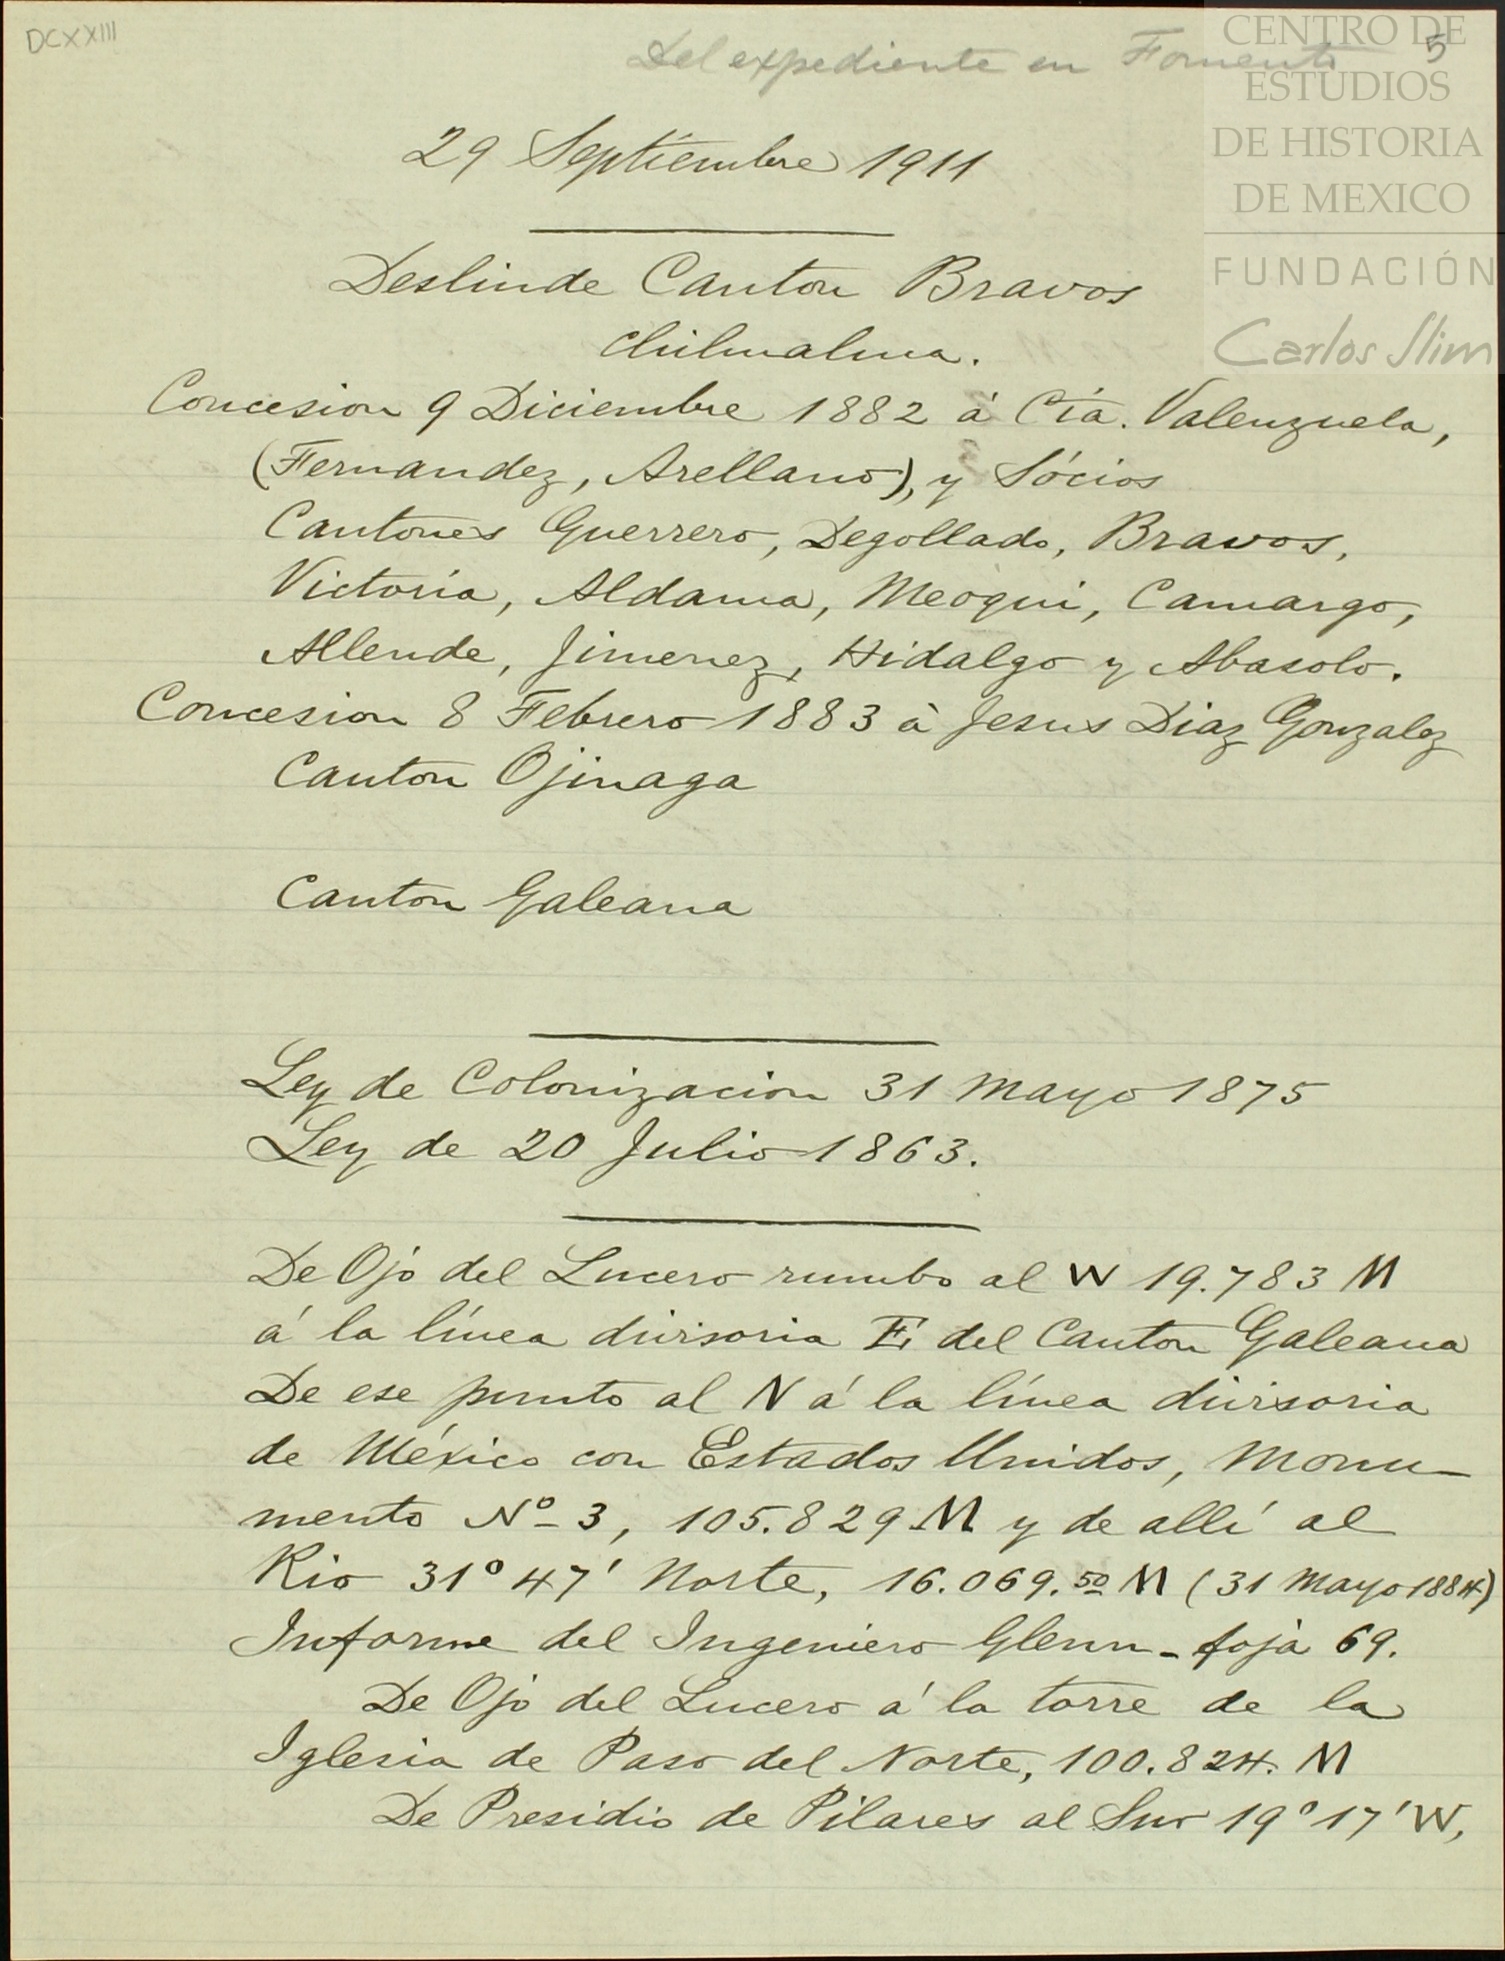 DCXXIII
Del expediente en Fomento 5
CENTRO DE
ESTUDIOS
DE HISTORIA
DE MEXICO
FUNDACIÓN
Carlos Slim
29 Septiembre 1911
Deslinde Canton Bravos
Chihuahua.
Concesion 9 Diciembre 1882 á Cía. Valenzuela,
(Fernandez, Arellano), y Sócios
Cantones Guerrero, Degollado, Bravos,
Victoria, Aldama, Meoqui, Camargo,
Allende, Jimenez, Hidalgo y Abasolo.
Concesion 8 Febrero 1883 à Jesus Diaz Gonzalez
Canton Ojinaga
Canton Galeana
Ley de Colonizacion 31 Mayo 1875
Ley de 20 Julio 1863.
De Ojo del Lucero rumbo al W 19.783 M
á la línea divisoria E del Canton Galeana
De ese punto al N á la línea divisoria
de México con Estados Unidos, Monu-
mento Nº 3, 105.829 M y de allí al
Rio 31º 47' Norte, 16.069.50 M (31 Mayo 1884)
Informe del Ingeniero Glenn - foja 69.
De Ojo del Lucero á la torre de la
Iglesia de Paso del Norte, 100.824. M
De Presidio de Pilares al Sur 19º 17' W,